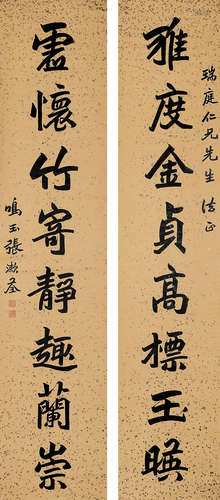 瑞庭仁兄先生 法正
雅度金貞高標玉暎
虛懷竹寄靜趣蘭崇
鳴玉張漱荃